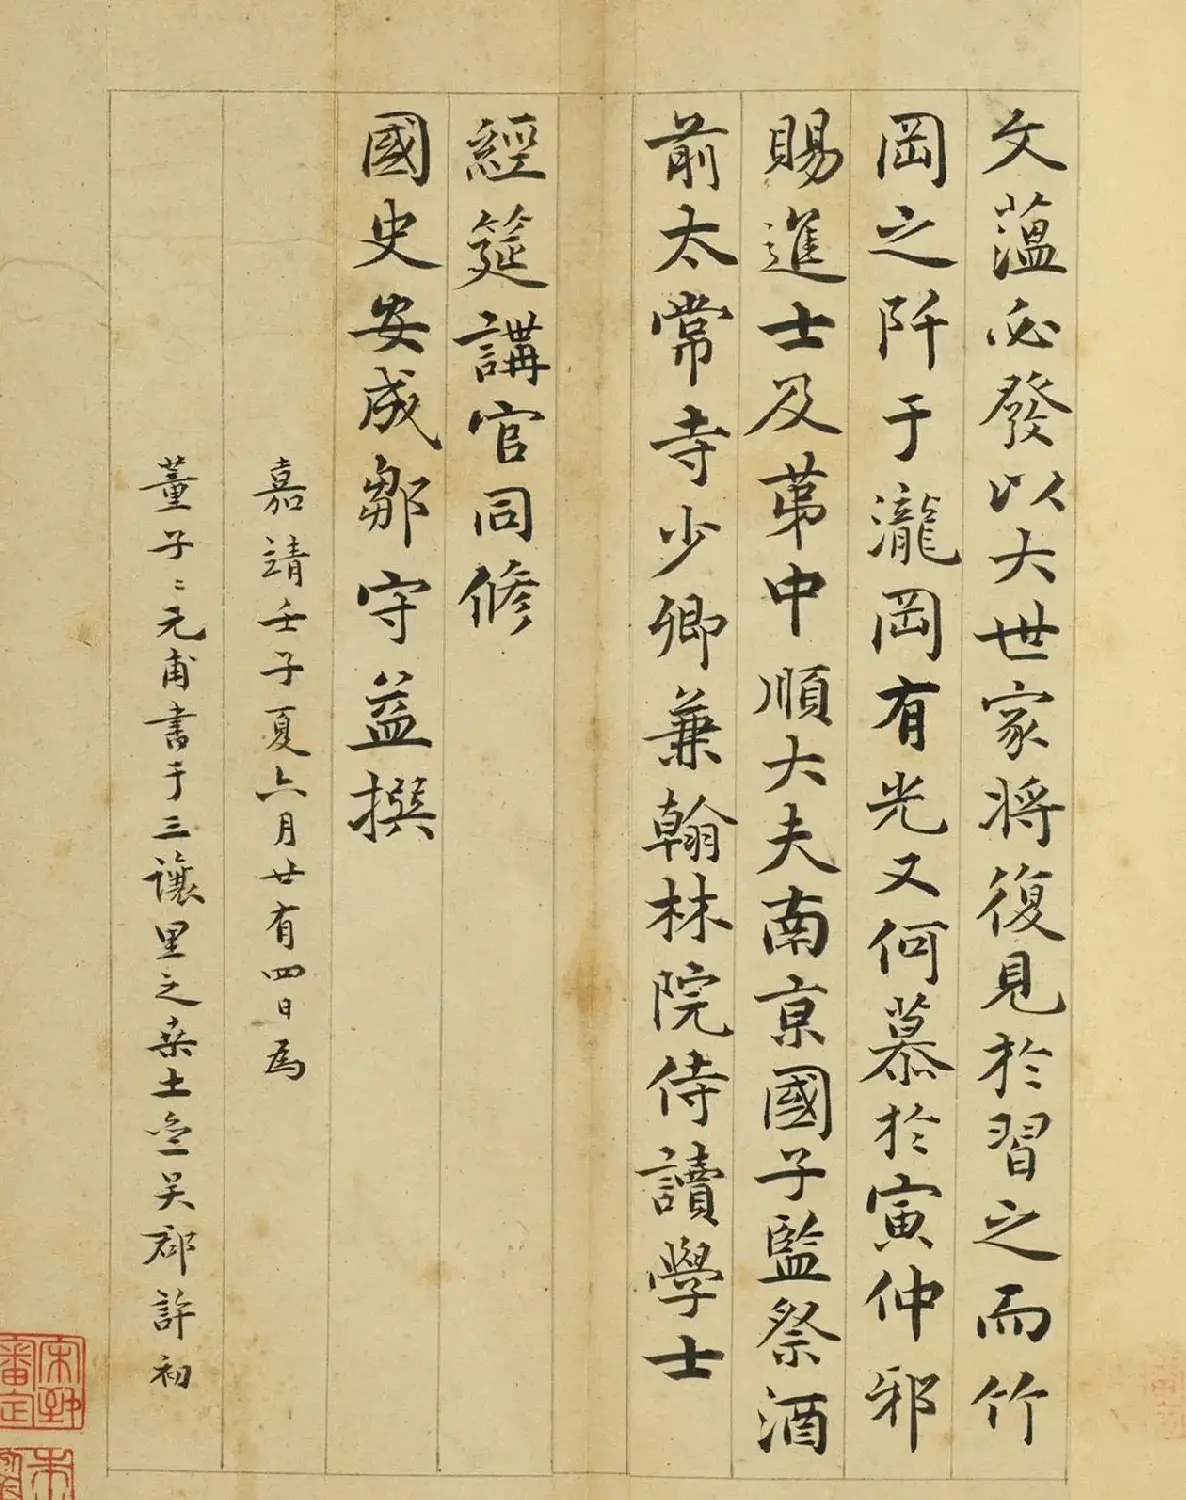 文薀必發以大世家將復見於習之而竹
岡之阡于瀧岡有光又何慕於寅仲邪
賜進士及苐中順大夫南亰國子監祭酒
前太常寺少卿兼翰林院侍讀學士
經筵講官同修
國史安成鄒守益撰
嘉靖壬子夏六月廿有四日為
董子〻元甫書于三讓里之桒土 吴郡許初